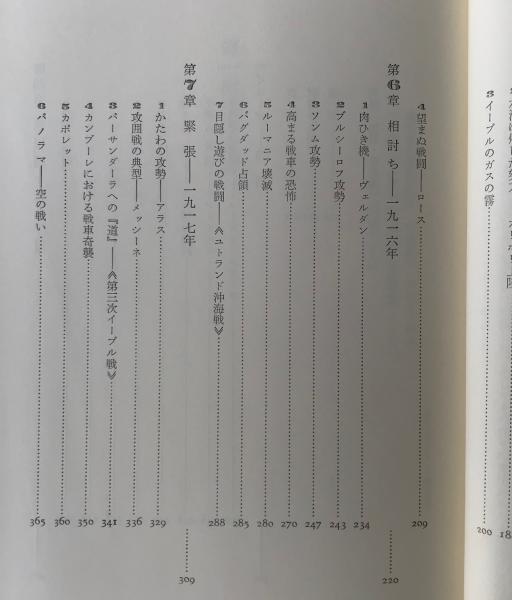 3 イープルのガスの霧 200
4 望まぬ戦闘——ロース 209
第6章 相討ち——一九一六年 220
1 肉ひき機——ヴェルダン 234
2 ブルシーロフ攻勢 243
3 ソンム攻勢 247
4 高まる戦車の恐怖 270
5 ルーマニア壊滅 280
6 バグダッド占領 285
7 目隠し遊びの戦闘——《ユトランド沖海戦》 288
第7章 緊張——一九一七年 309
1 かたわの攻勢——アラス 329
2 攻囲戦の典型——メッシーネ 336
3 パーサンダーラへの『道』——《第三次イープル戦》 341
4 カンブーレにおける戦車奇襲 350
5 カポレット 360
6 パノラマ——空の戦い 365